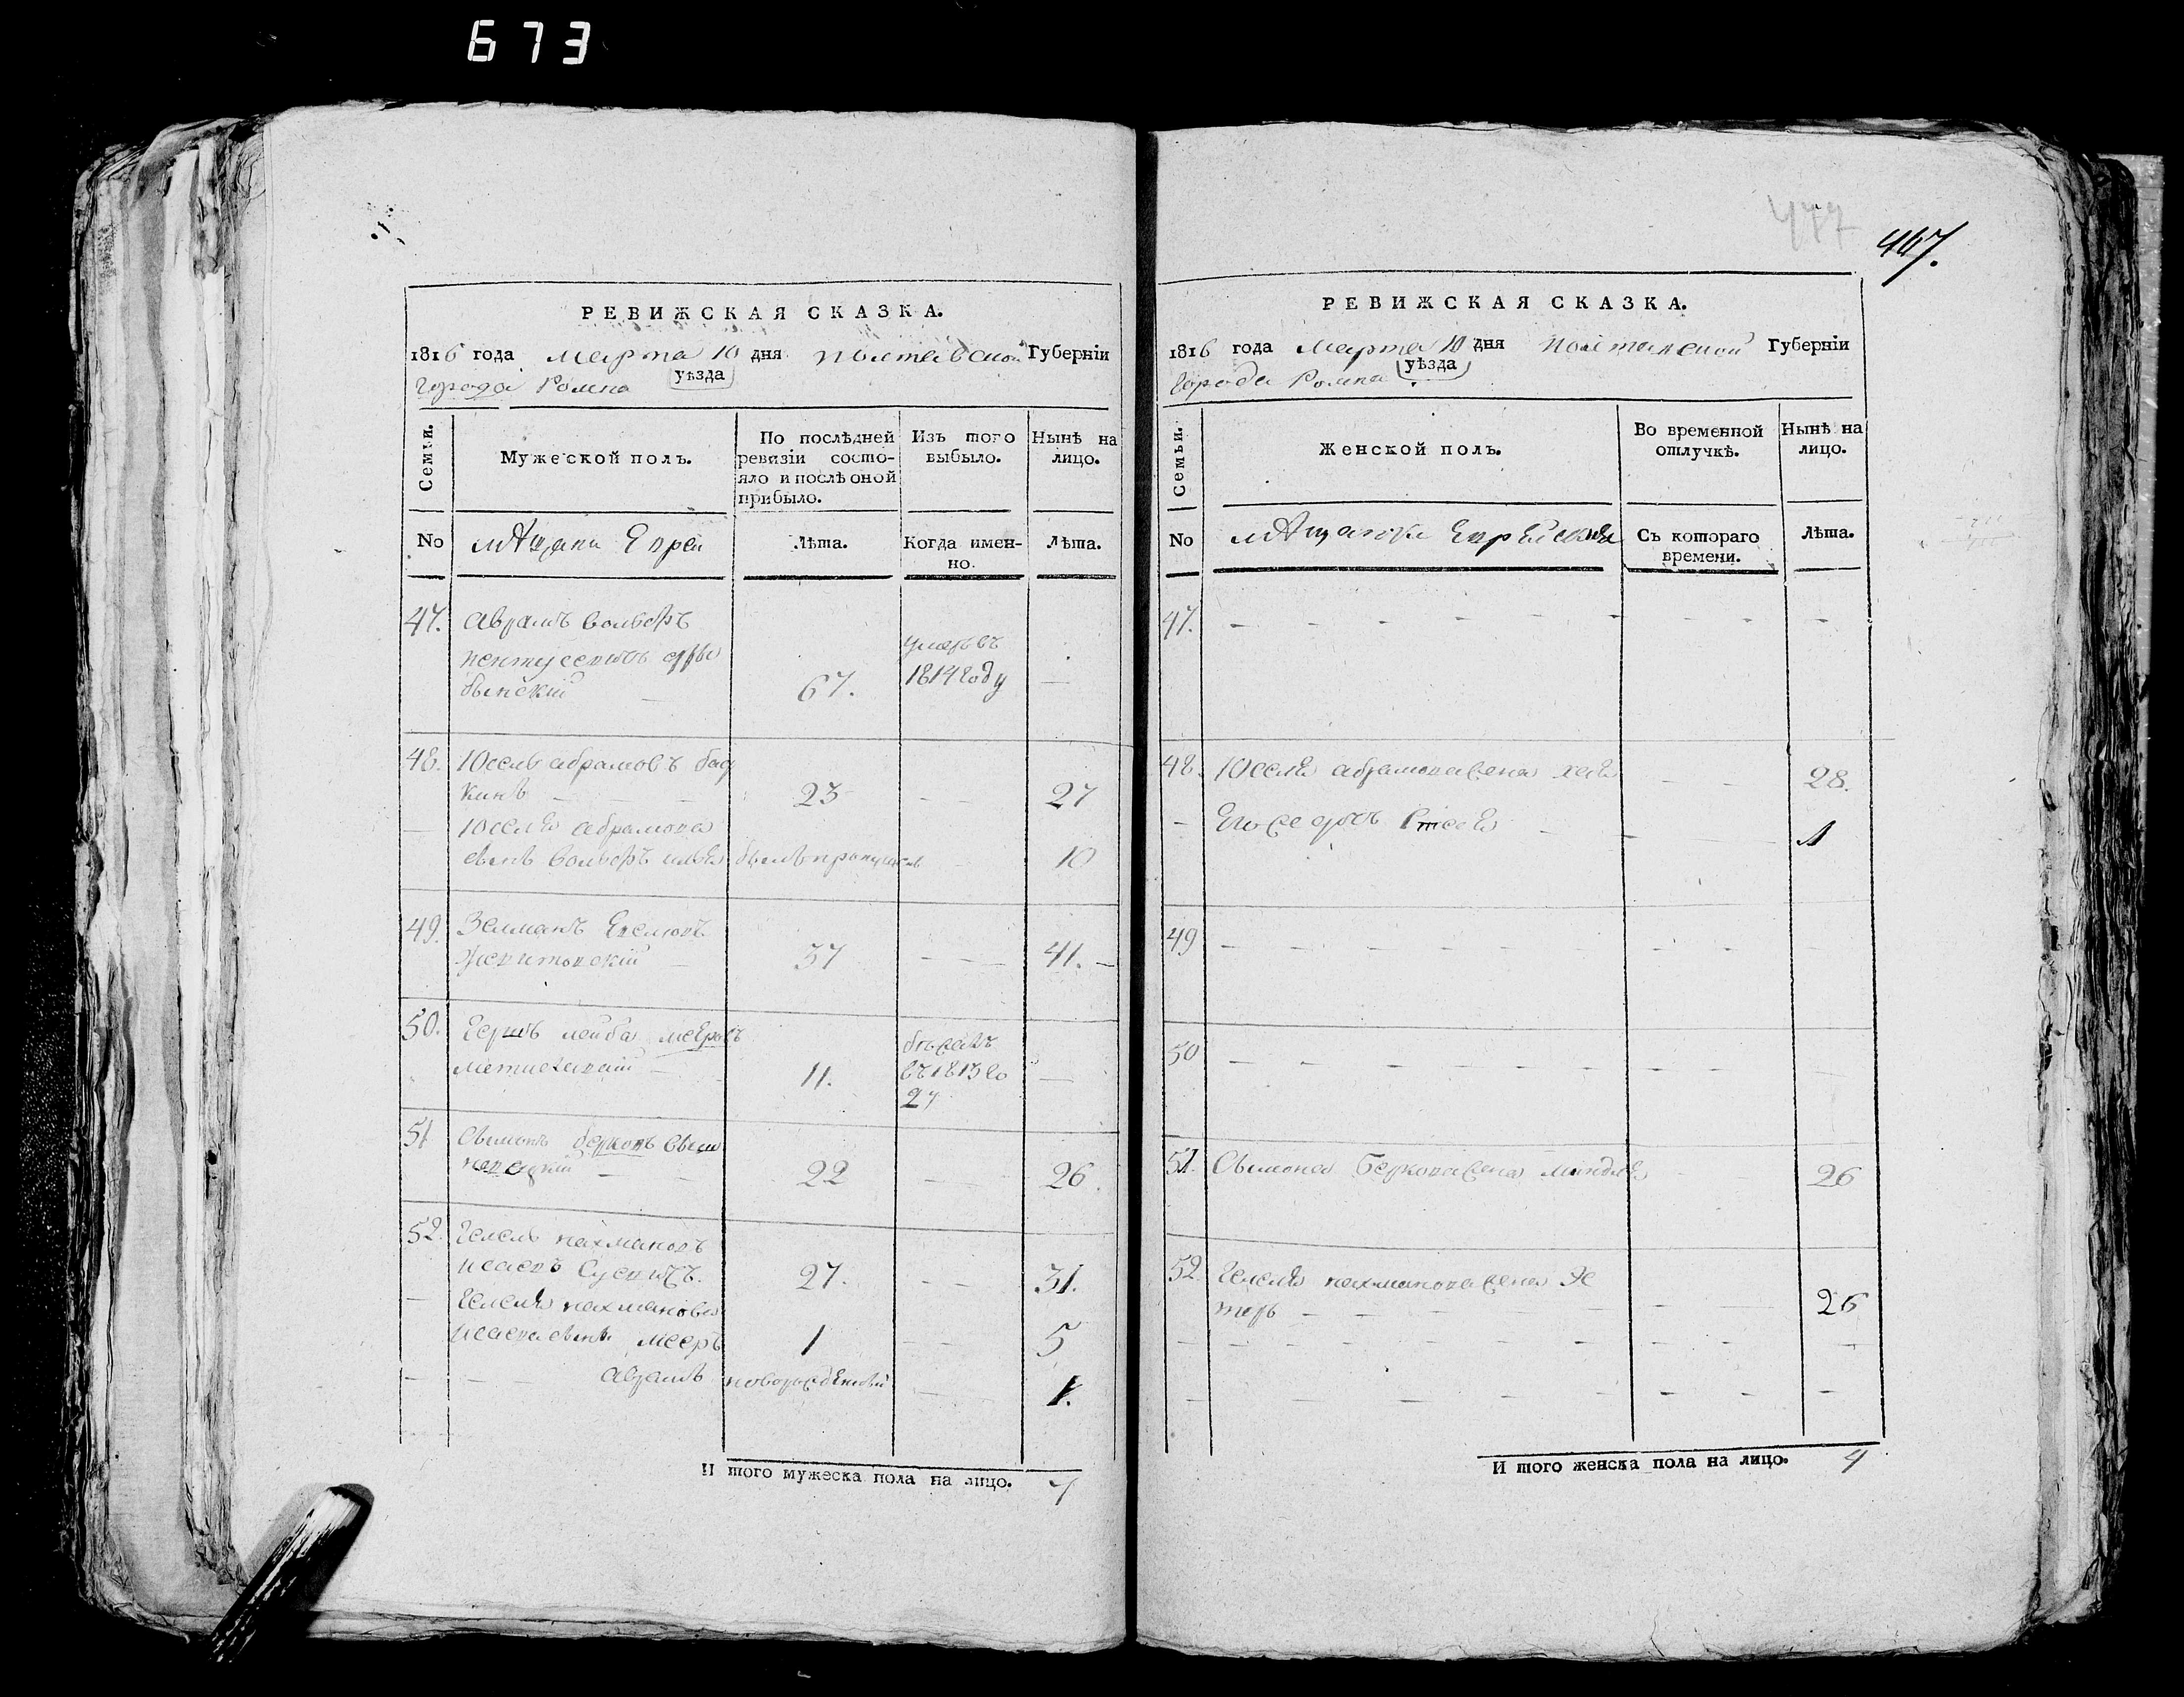 673
РЕВИЖСКАЯ СКАЗКА.
1816 года Марта 10 дня Полтавской Губернїи
города Ромна уѣзда
Семьи.
Мужеской полъ.
По послѣдней ревизїи состояло и послѣ оной прибыло.
Изъ того выбыло.
Нынѣ на лицо.
No
мѣщани Евреи
Лѣта.
Когда именно.
Лѣта.
47. Аврамъ Вольфъ
67.
умеръ въ
1814 году
—
48. Юсель Абрамовъ
23 — — 27
— Юселя Абрамова
сынъ Вольфъ былъ пропущенъ — 10
49. Зелманъ
37 — — 41. —
50. Гершъ Лейба Мееровъ
11.
въ 1813 го
ду
—
51 Сымонъ Берковъ
22 — — 26.
52. Гесель Нахмановъ
Исаевъ
27. — — 31.
— Геселя Нахманова
Исаева сынъ Мееръ 1 — — 5
— — — Аврамъ новорожденный — 1.
И того мужеска пола на лицо. 7
477
467.
РЕВИЖСКАЯ СКАЗКА.
1816 года Марта 10 дня Полтавской Губернїи
города Ромна уѣзда
Семьи.
Женской полъ.
Во временной отлучкѣ.
Нынѣ на лицо.
No
мѣщанки Еврейския
Съ котораго времени.
Лѣта.
47. — — — — — — — — —
48. Юселя Абрамова жена Хая — — 28.
— Его же дочь — — — 1
49 — — — — — — — — —
50 — — — — — — — — —
51. Сымона Беркова жена Миндля — 26
52. Геселя Нахманова жена Эс
теръ — — — — — — 26
— — — — — — — — —
— — — — — — — — —
И того женска пола на лицо. 4